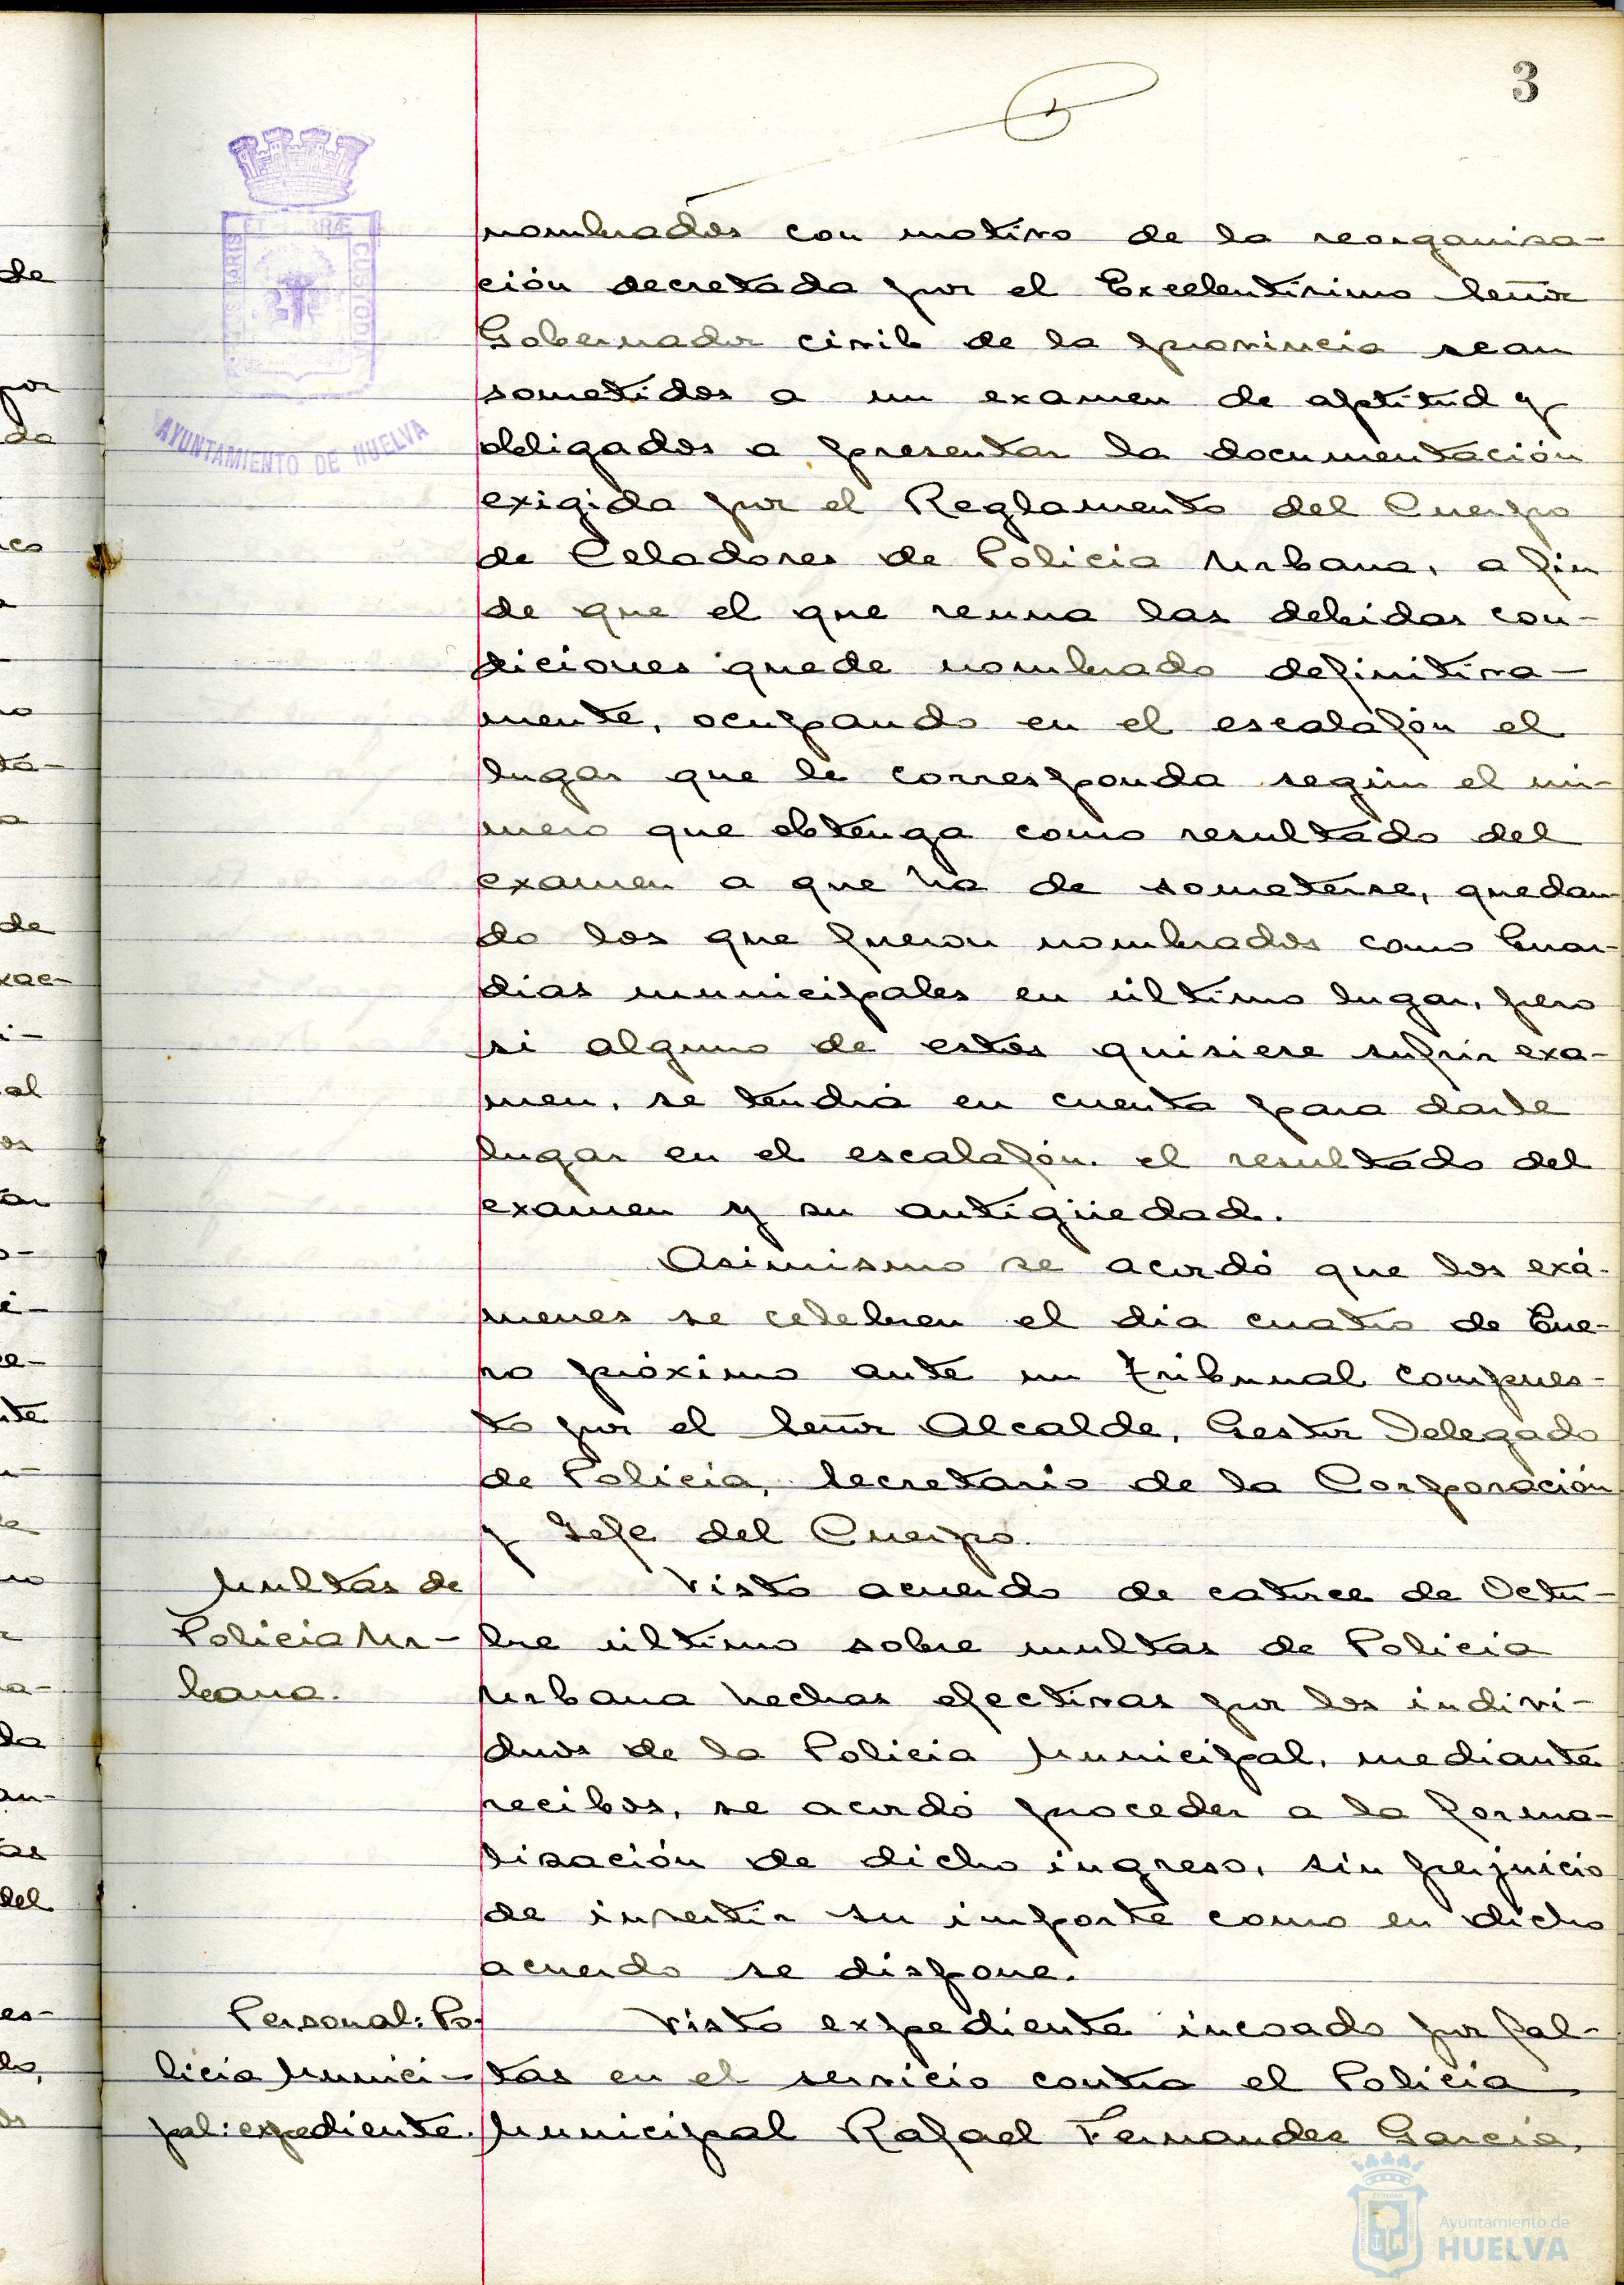 3
PORTUS MARIS ET TERRÆ CUSTODIA
AYUNTAMIENTO DE HUELVA
nombrados con motivo de la reorganiza-
ción decretada por el Excelentísimo Señor
Gobernador civil de la provincia sean
sometidos a un examen de aptitud y
obligados a presentar la documentación
exigida por el Reglamento del Cuerpo
de Celadores de Policia Urbana, a fin
de que el que reuna las debidas con-
diciones quede nombrado definitiva-
mente, ocupando en el escalafón el
lugar que le corresponda según el nú-
mero que obtenga como resultado del
examen a que ha de someterse, quedan-
do los que fueron nombrados como Guar-
dias municipales en último lugar, pero
si alguno de estos quisiere sufrir exa-
men, se tendrá en cuenta para darle
lugar en el escalafón el resultado del
examen y su antigüedad.
Asimismo se acordó que los exá-
menes se celebren el dia cuatro de Ene-
ro próximo ante un tribunal compues-
to por el Señor Alcalde, Gestor Delegado
de Policia, Secretario de la Corporación
y Jefe del Cuerpo.
Multas de
Policia Ur-
bana.
Visto acuerdo de catorce de Octu-
bre último sobre multas de Policia
Urbana hechas efectivas por los indivi-
duos de la Policia Municipal, mediante
recibos, se acordó proceder a la forma-
lización de dicho ingreso, sin perjuicio
de invertir su importe como en dicho
acuerdo se dispone.
Personal: Po-
licia Munici-
pal: expediente.
Visto expediente incoado por fal-
tas en el servicio contra el Policia
Municipal Rafael Fernandez Garcia,
Ayuntamiento de
HUELVA